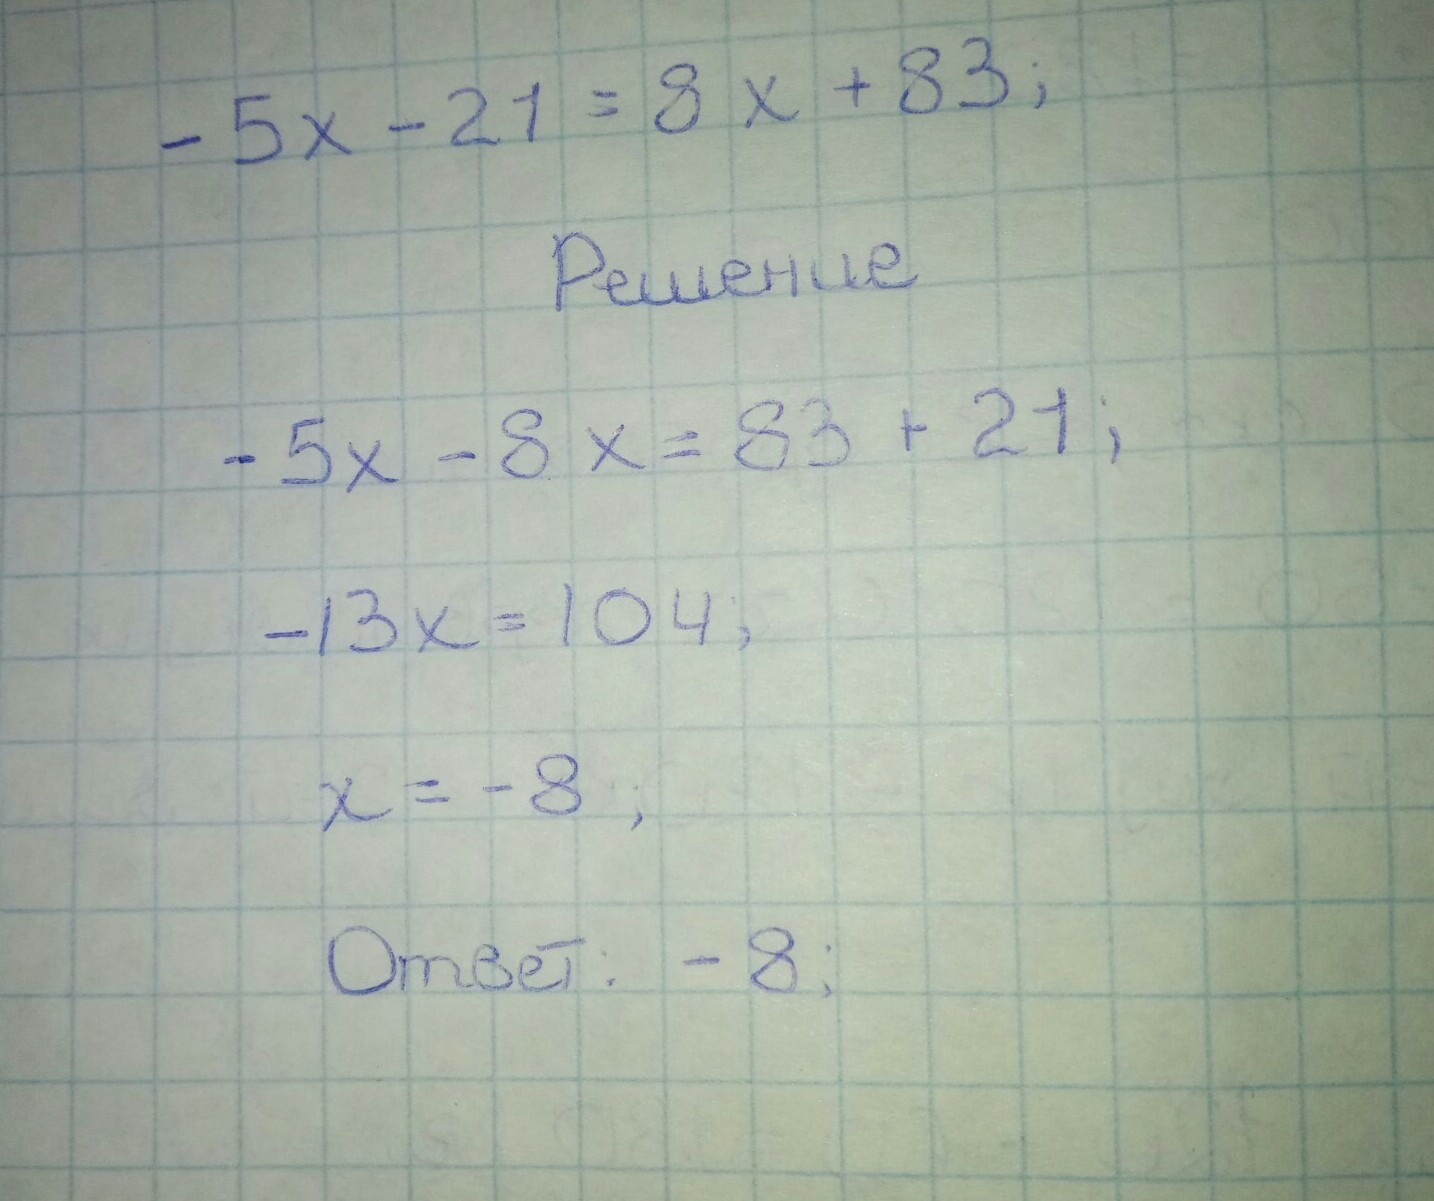 -5x-21=8x+83;
Решение
-5x-8x=83+21;
-13x=104;
x=-8;
Ответ: -8;